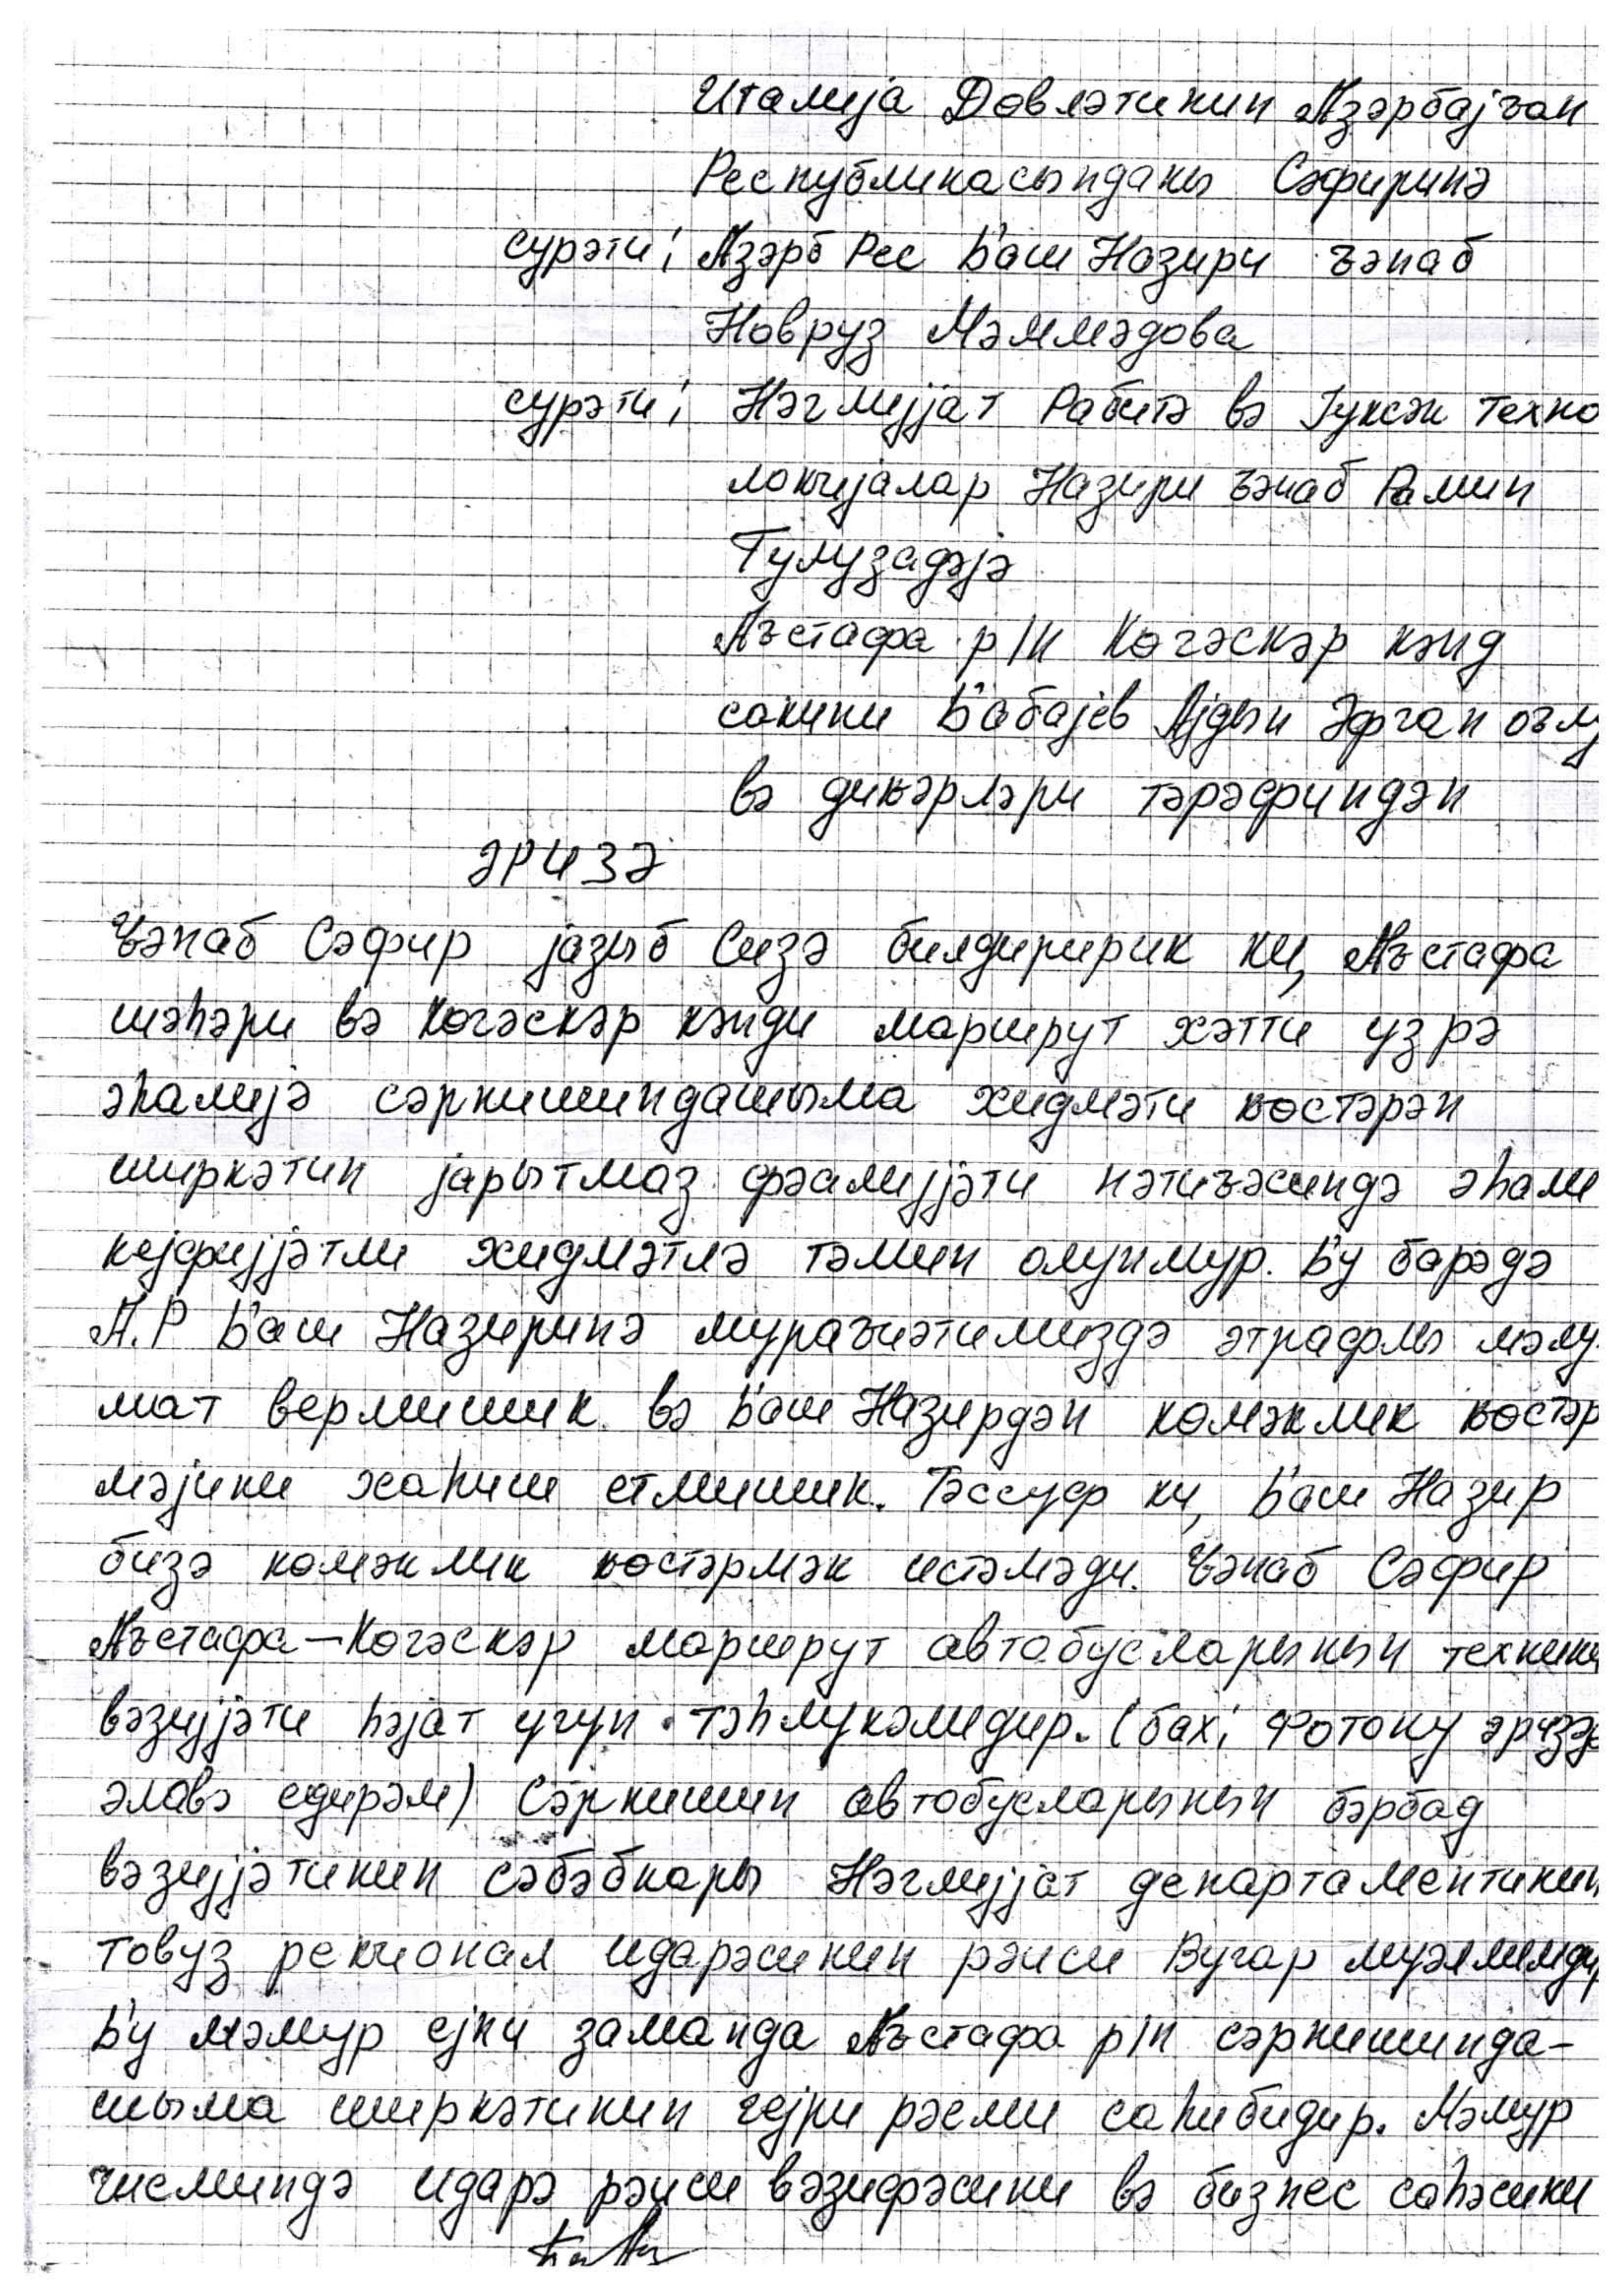 Италија Дөвләтинин Азәрбајҹан
Республикасындакы Сәфиринә
сурәти; Азәрб Рес Баш Назири ҹәнаб
Новруз Мәммәдова
сурәти; Нәглијјат Рабитә вә Јуксәк техно
локијалар Назири ҹәнаб Рамин
Гулузадәјә
Ағстафа р/н Көчәскәр кәнд
сакини Бабајев Ајдын Әфган оғлу
вә дикәрләри тәрәфиндән
ӘРИЗӘ
Ҹәнаб Сәфир јазыб Сизә билдиририк ки, Ағстафа
шәһәри вә Көчәскәр кәнди маршрут хәтти узрә
әһалијә сәрнишиндашыма хидмәти көстәрән
ширкәтин јарытмаз фәалијјәти нәтиҹәсиндә әһали
кејфијјәтли хидмәтлә тәмин олунмур. Бу барәдә
А.Р Баш Назиринә мураҹиәтимиздә әтрафлы мәлу
мат вермишик. вә Баш Назирдән көмәклик көстәр
мәјини хаһиш етмишик. Тәссуф ки, Баш Назир
бизә көмәклик көстәрмәк истәмәди. Ҹәнаб Сәфир
Ағстафа–Көчәскәр маршрут автобусларынын техники
вәзијјәти һәјат учун тәһлукәлидир. (бах; Фотону әризәјә
әлавә едирәм) Сәрнишин автобусларынын бәрбад
вәзијјәтинин сәбәбкары Нәглијјат департаментинин
товуз рекионал идарәсинин рәиси Вугар муәллимдир
Бу мәмур ејни заманда Ағстафа р/н сәрнишинда-
шыма ширкәтинин гејри рәсми саһибидир. Мәмур
ҹисминдә идарә рәиси вәзифәсини вә бизнес саһәсини